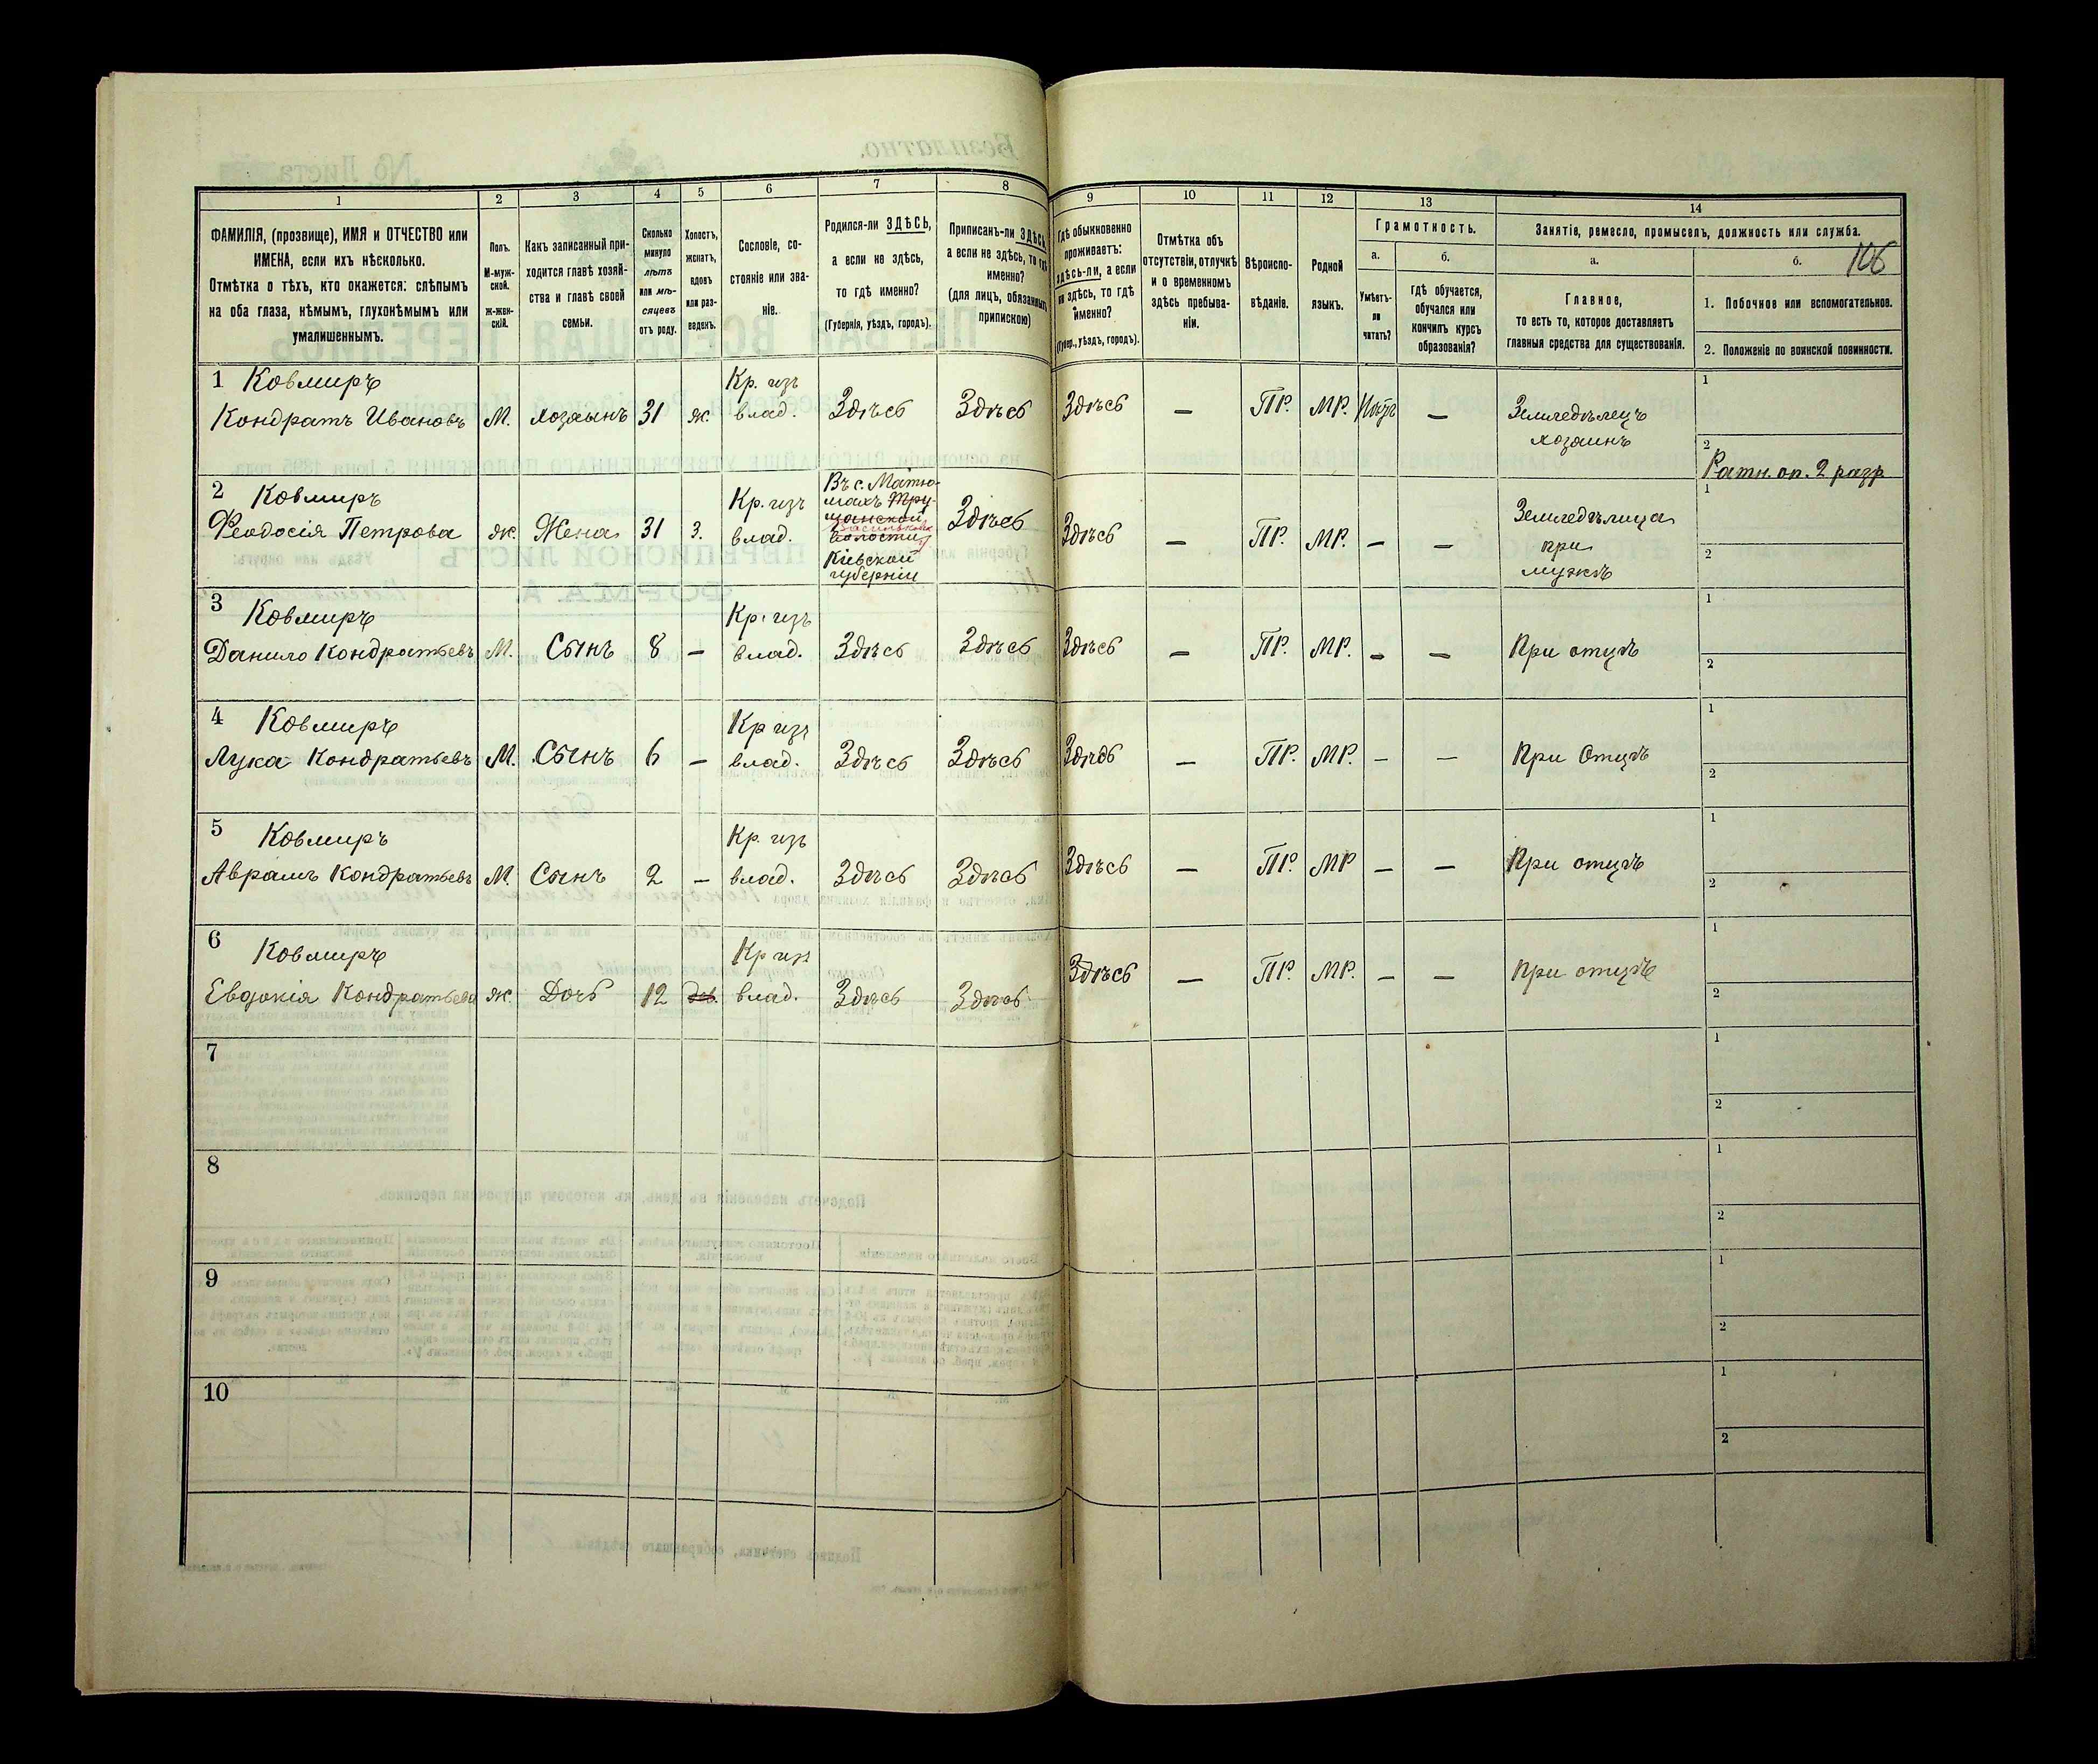 1
2
3
4
5
6
7
8
9
10
11
12
13
14
ФАМИЛІЯ, (прозвище), ИМЯ и ОТЧЕСТВО или
ИМЕНА, если ихъ нѣсколько.
Отмѣтка о тѣхъ, кто окажется: слѣпымъ
на оба глаза, нѣмымъ, глухонѣмымъ или
умалишеннымъ.
Полъ.
М-муж-
ской.
Ж-жен-
скій.
Какъ записанный при-
ходится главѣ хозяй-
ства и главѣ своей
семьи.
Сколько
минуло
лѣтъ
или мѣ-
сяцевъ
отъ роду.
Холостъ,
женатъ,
вдовъ
или раз-
веденъ.
Сословіе, со-
стояніе или зва-
ніе.
Родился-ли ЗДѢСЬ,
а если не здѣсь,
то гдѣ именно?
(Губернія, уѣздъ, городъ).
Приписанъ-ли ЗДѢСЬ,
а если не здѣсь, то гдѣ
именно?
(для лицъ, обязанныхъ
припискою)
Гдѣ обыкновенно
проживаетъ:
здѣсь-ли, а если
не здѣсь, то гдѣ
именно?
(Губер., уѣздъ, городъ).
Отмѣтка объ
отсутствіи, отлучкѣ
и о временномъ
здѣсь пребыва-
ніи.
Вѣроиспо-
вѣданіе.
Родной
языкъ.
Грамотность.
а.
Умѣетъ-
ли
читать?
б.
гдѣ обучается,
обучался или
кончилъ курсъ
образованія?
Занятіе, ремесло, промыселъ, должность или служба.
а.
Главное,
то есть то, которое доставляетъ
главныя средства для существованія.
б.
106
1. Побочное или вспомогательное.
2. Положеніе по воинской повинности.
1 Ковмиръ
Кондратъ Ивановъ М. хозаынъ 31 ж. Кр. изъ влад. Здѣсь Здѣсь Здѣсь — ПР. МР. — Земледѣлецъ
хозаинъ
1
2
Ратн. оп. 2 разр.
2 Ковмиръ
Феодосія Петрова ж. Жена 31 З. Кр. изъ влад.
Въ с. Матю-
шахъ
волости
Кіевской
губерніи
Здѣсь Здѣсь — ПР. МР. — — Земледѣлица
при
мужѣ
1
2
3 Ковмиръ
Данило Кондратьевъ М. Сынъ 8 — Кр. изъ влад. Здѣсь Здѣсь Здѣсь — ПР. МР. — — При отцѣ
1
2
4 Ковмиръ
Лука Кондратьевъ М. Сынъ 6 — Кр изъ влад. Здѣсь Здѣсь Здѣсь — ПР. МР. — — При Отцѣ
1
2
5 Ковмиръ
Аврамъ Кондратьевъ М. Сынъ 2 — Кр. изъ влад. Здѣсь Здѣсь Здѣсь — ПР. МР — — При отцѣ
1
2
6 Ковмиръ
Евдокія Кондратьева ж. Дочь 12 Кр изъ влад. Здѣсь Здѣсь Здѣсь — ПР. МР. — — при отцѣ
1
2
7
1
2
8
1
2
9
1
2
10
1
2